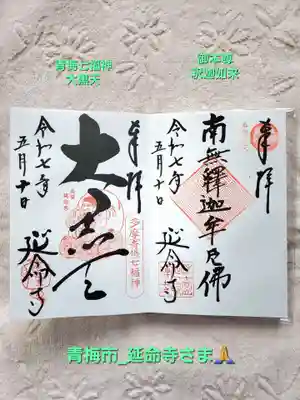 青梅七福神
大黒天
御本尊
釈迦如来
奉拝
南無釋迦牟尼佛
令和七年
五月十日
延命寺
奉拝
大黒天
多摩青梅七福神
令和七年
五月十日
延命寺
青梅市_延命寺さま🙏